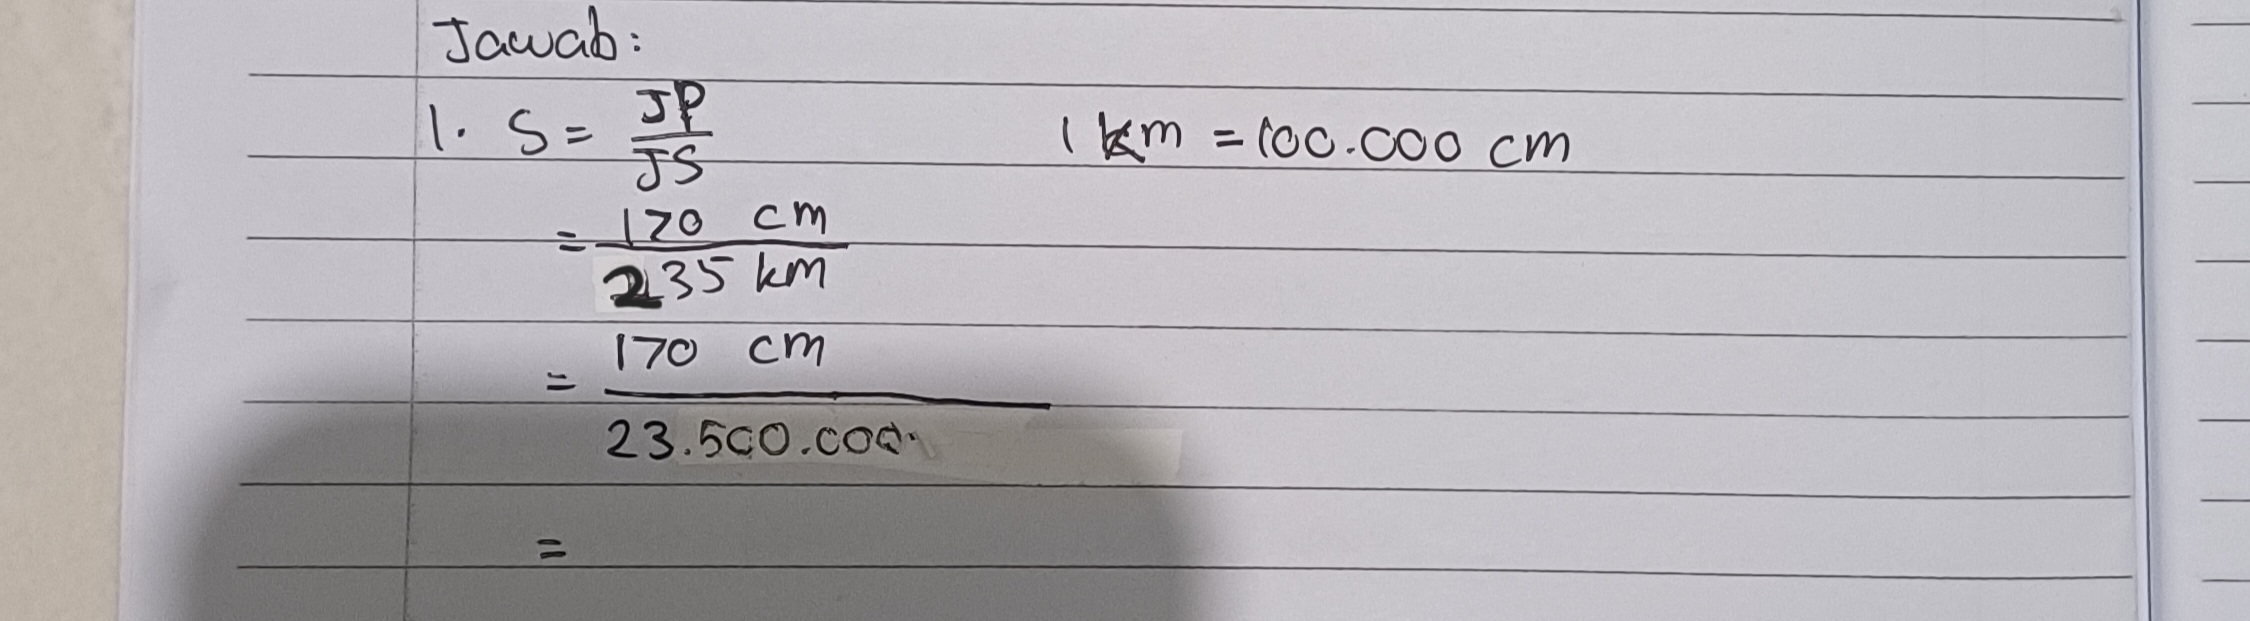 Jawab:
1. S = JP / JS 1 km = 100.000 cm
= 170 cm / 235 km
= 170 cm / 23.500.000
=